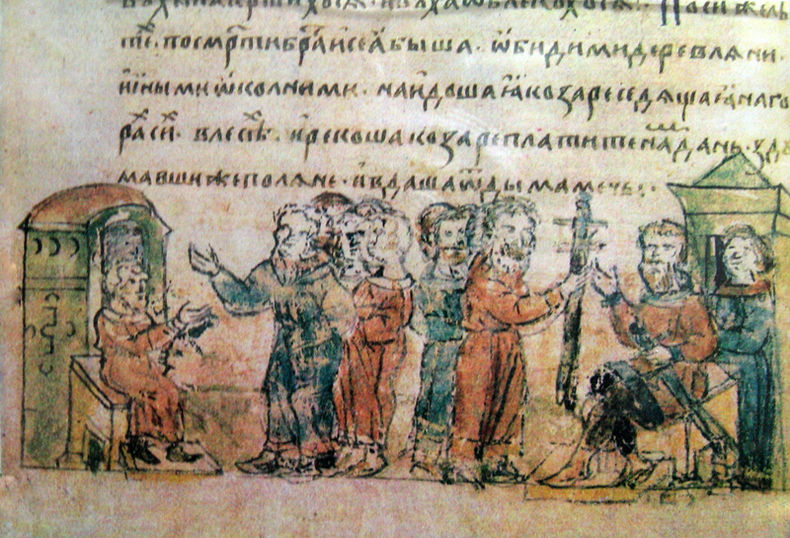 По сихже лѣ
тѣ. по смр҃ти братиꙗ сеꙗ быша. ѡ҆бидими деревлѧни.
инѣми ѡ҆колними. наидоша ꙗ҆ козаре седѧщаꙗ҆ на го
рах си. в лесѣ. и рекоша козаре платите на дань. ѕдꙋ
мавши же полѧне. и вдаша ѿ дыма мечь: